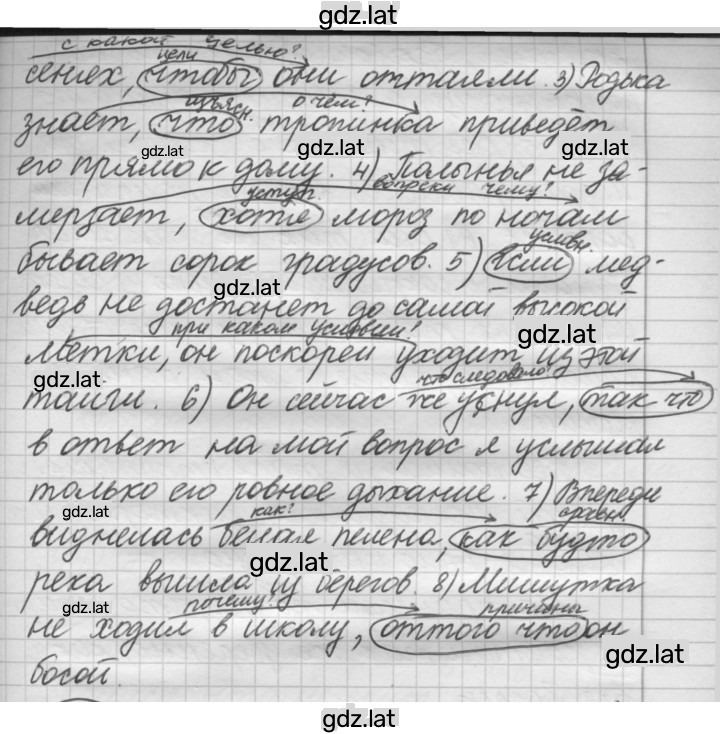 gdz.lat
с какой целью?
цели
сенях, чтобы они оттаяли. 3) Родька
изъясн. о чём?
знает, что тропинка приведёт
gdz.lat gdz.lat
его прямо к дому. 4) Полынья не за-
уступ. вопреки чему?
мерзает, хотя мороз по ночам
условн.
бывает сорок градусов. 5) Если мед-
gdz.lat
ведь не достанет до самой высокой
при каком условии? gdz.lat
метки, он поскорей уходит из этой
gdz.lat что следовало?
тайги. 6) Он сейчас же уснул, так что
в ответ на мой вопрос я услышал
только его ровное дыхание. 7) Впереди
gdz.lat как? сравн.
виднелась белая пелена, как будто
gdz.lat
река вышла из берегов. 8) Мишутка
gdz.lat почему? причины
не ходил в школу, оттого что он
gdz.lat
босой.
gdz.lat